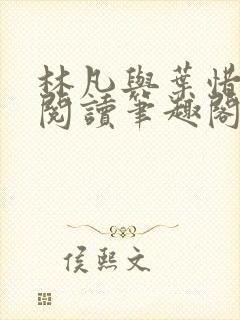 林凡與葉惜
閱讀筆趣閣
侯熙文